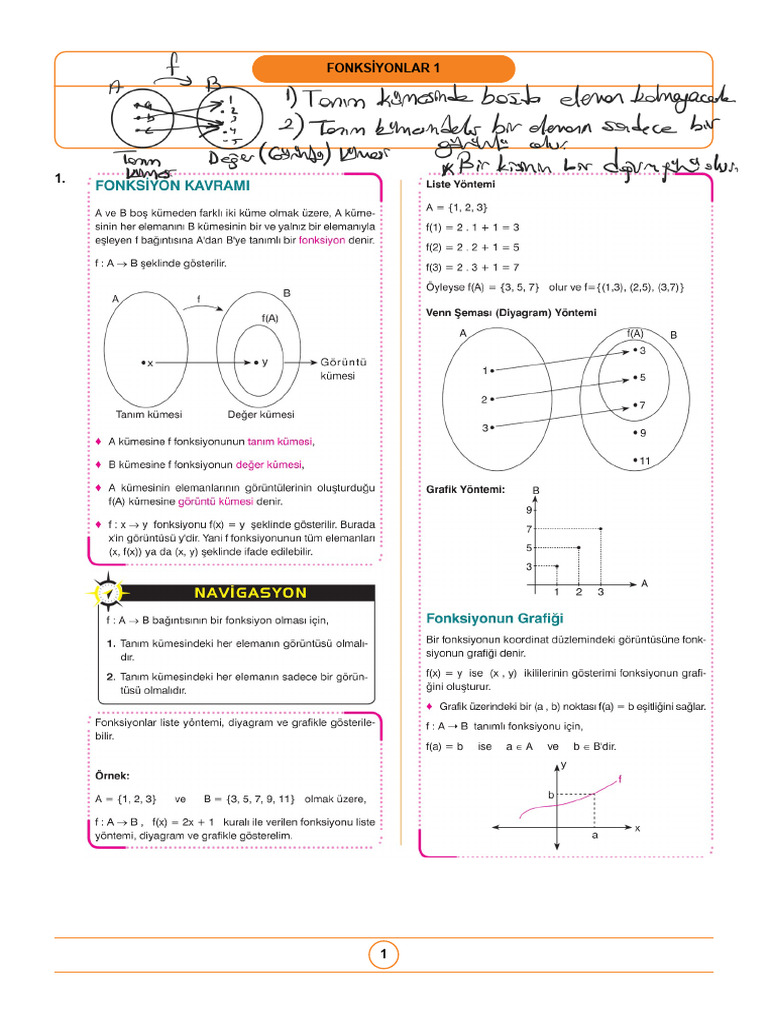 FONKSİYONLAR 1
f
A B
a
b
c
1
2
3
4
5
Tanım kümesi
Değer (Görüntü) kümesi
1) Tanım kümesinde boşta eleman kalmayacak
2) Tanım kümesindeki bir elemanın sadece bir
görüntüsü olur.
* Bir kişinin bir doğum günü olur.
1.
FONKSİYON KAVRAMI
A ve B boş kümeden farklı iki küme olmak üzere, A küme-
sinin her elemanını B kümesinin bir ve yalnız bir elemanıyla
eşleyen f bağıntısına A'dan B'ye tanımlı bir fonksiyon denir.
f : A → B şeklinde gösterilir.
A f B
f(A)
x y Görüntü
kümesi
Tanım kümesi Değer kümesi
♦ A kümesine f fonksiyonunun tanım kümesi,
♦ B kümesine f fonksiyonun değer kümesi,
♦ A kümesinin elemanlarının görüntülerinin oluşturduğu
f(A) kümesine görüntü kümesi denir.
♦ f : x → y fonksiyonu f(x) = y şeklinde gösterilir. Burada
x'in görüntüsü y'dir. Yani f fonksiyonunun tüm elemanları
(x, f(x)) ya da (x, y) şeklinde ifade edilebilir.
NAVİGASYON
f : A → B bağıntısının bir fonksiyon olması için,
1. Tanım kümesindeki her elemanın görüntüsü olmalı-
dır.
2. Tanım kümesindeki her elemanın sadece bir görün-
tüsü olmalıdır.
Fonksiyonlar liste yöntemi, diyagram ve grafikle gösterile-
bilir.
Örnek:
A = {1, 2, 3} ve B = {3, 5, 7, 9, 11} olmak üzere,
f : A → B , f(x) = 2x + 1 kuralı ile verilen fonksiyonu liste
yöntemi, diyagram ve grafikle gösterelim.
Liste Yöntemi
A = {1, 2, 3}
f(1) = 2 . 1 + 1 = 3
f(2) = 2 . 2 + 1 = 5
f(3) = 2 . 3 + 1 = 7
Öyleyse f(A) = {3, 5, 7} olur ve f={(1,3), (2,5), (3,7)}
Venn Şeması (Diyagram) Yöntemi
A f(A) B
1 3
2 5
3 7
9
11
Grafik Yöntemi:
B
9
7
5
3
1 2 3
A
Fonksiyonun Grafiği
Bir fonksiyonun koordinat düzlemindeki görüntüsüne fonk-
siyonun grafiği denir.
f(x) = y ise (x , y) ikililerinin gösterimi fonksiyonun grafi-
ğini oluşturur.
♦ Grafik üzerindeki bir (a , b) noktası f(a) = b eşitliğini sağlar.
f : A → B tanımlı fonksiyonu için,
f(a) = b ise a ∈ A ve b ∈ B'dir.
y
f
b
a
x
1